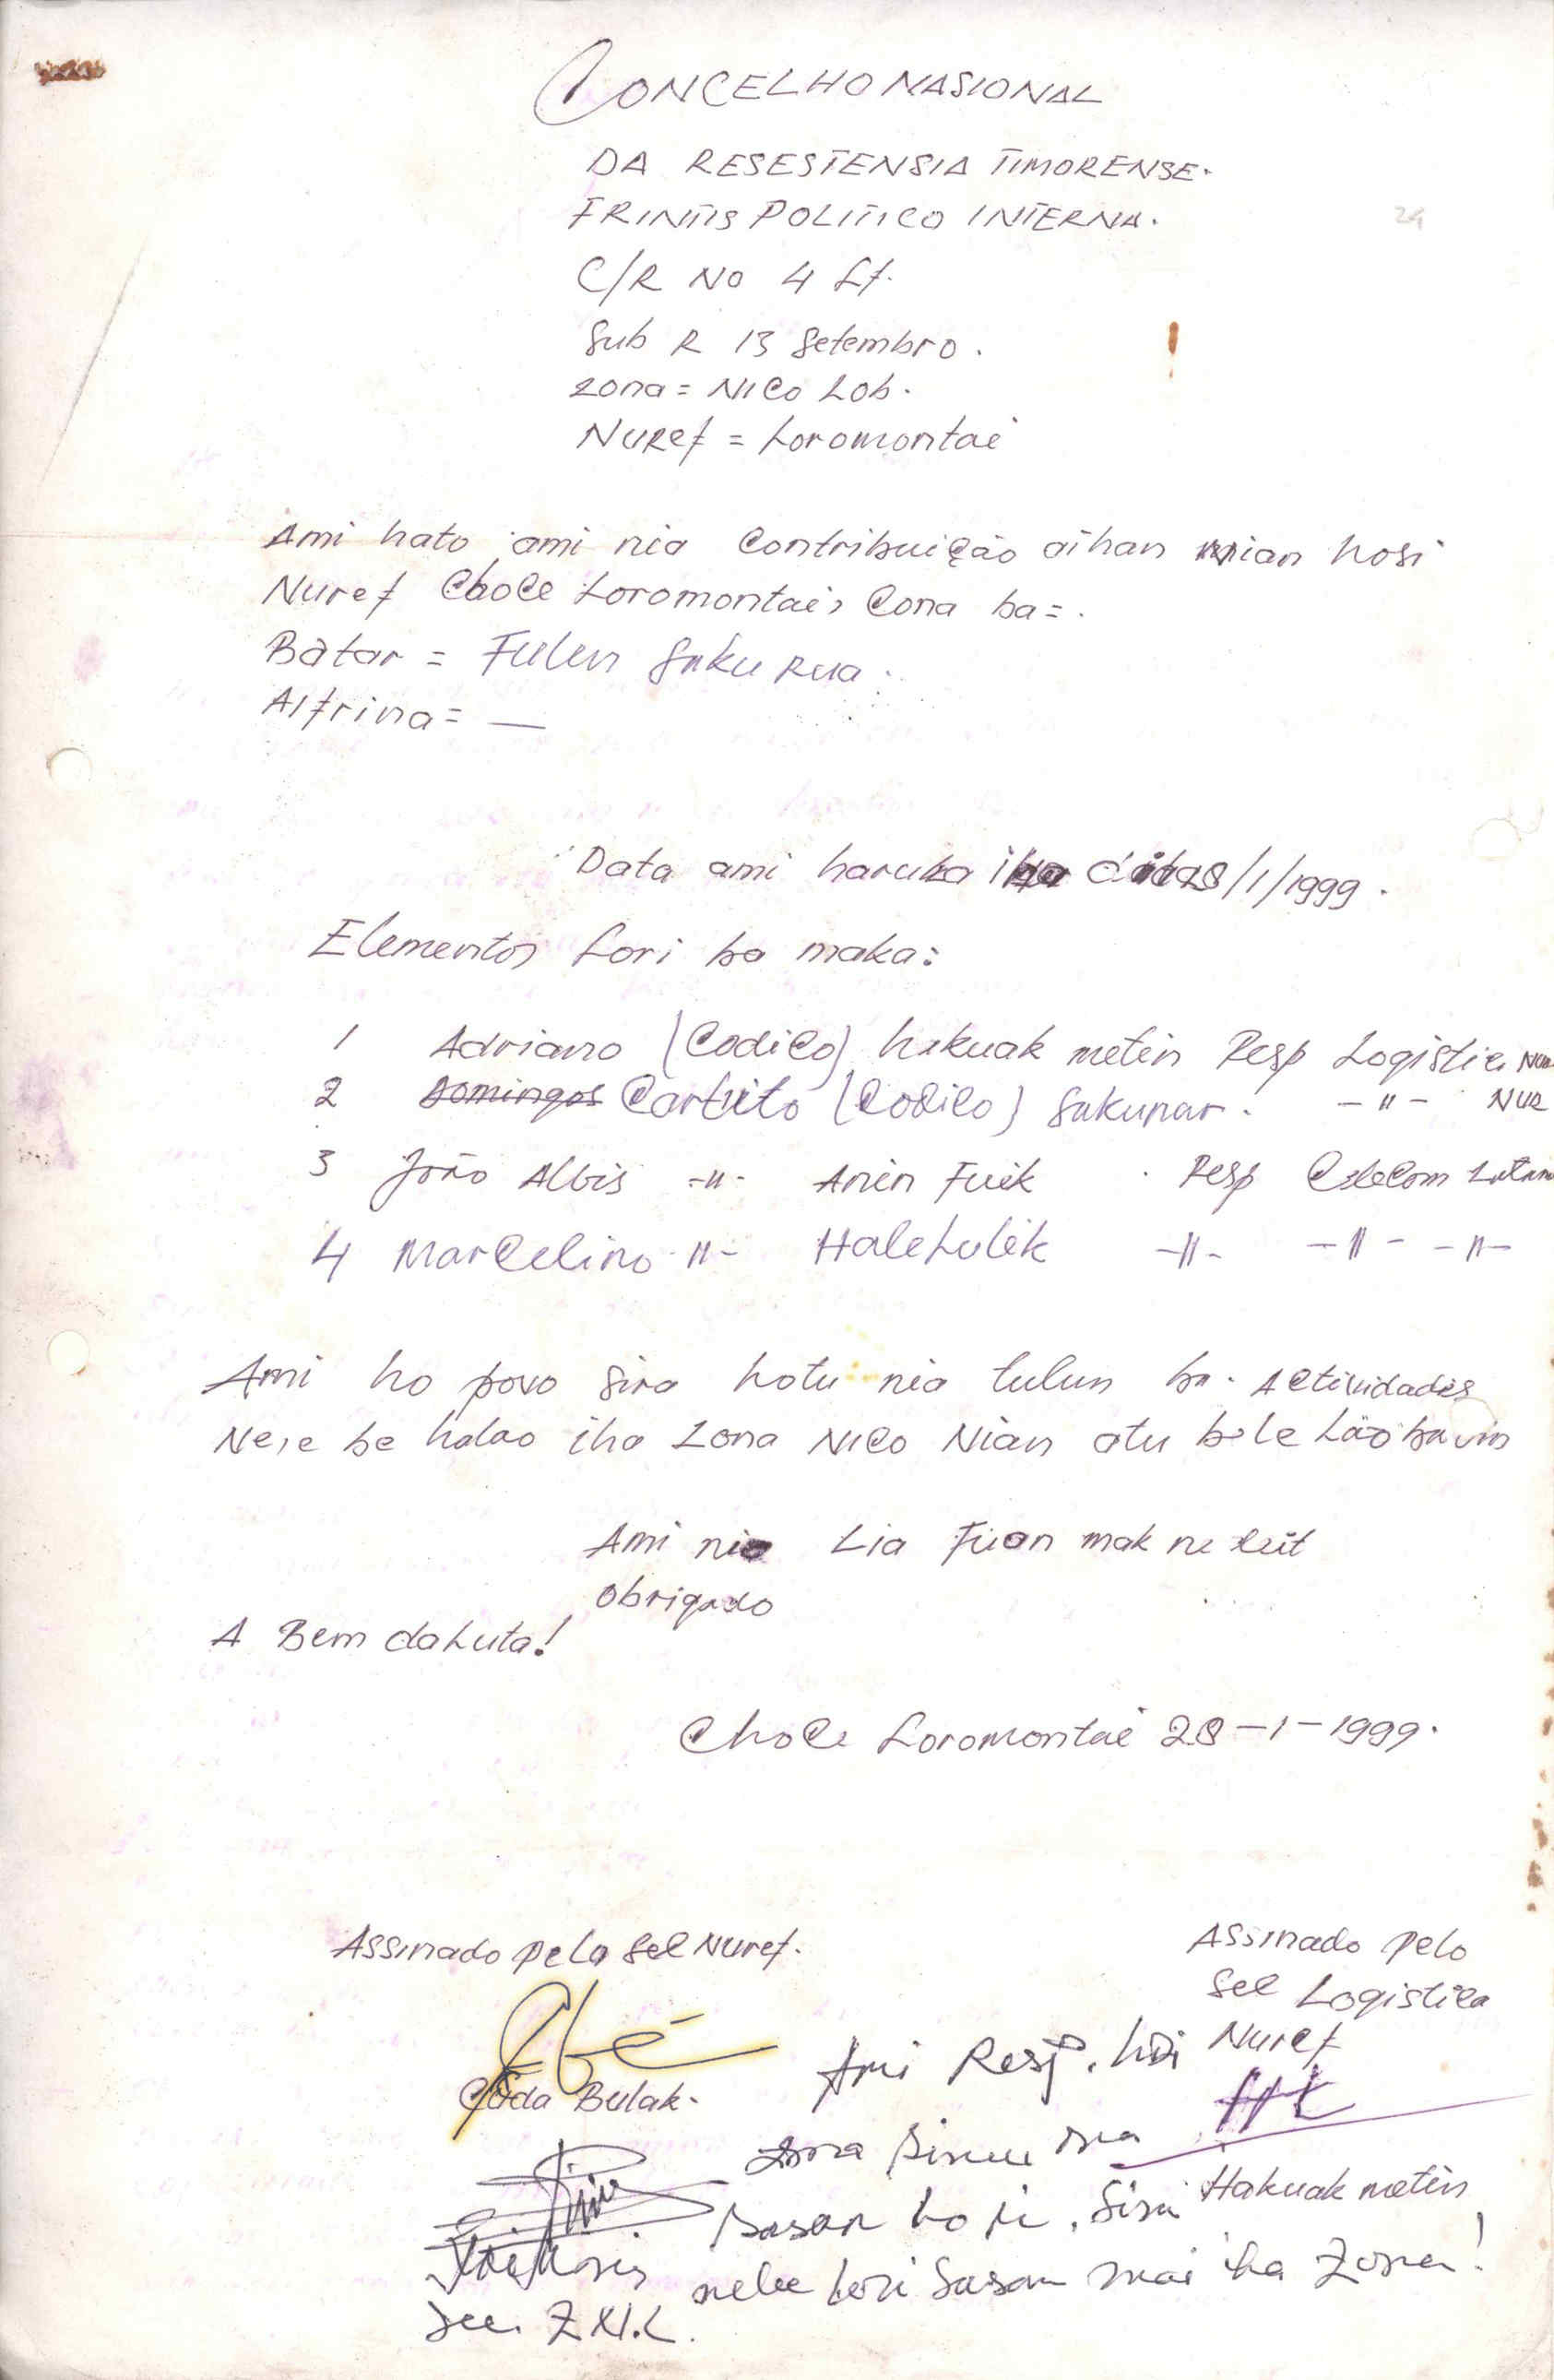 CONCELHO NASIONAL
DA RESESTENSIA TIMORENSE.
FRINTIS POLITICO INTERNA.
24
C/R No 4 Lf.
Sub R 13 Setembro.
Zona = NICO Lob.
NUREF = Loromontaé
Ami hato ami nia Contribuição aihan nian hosi
Nuref Choce Loromontaé, Cona ba =.
Batar = Fulun Sukurua.
Aifrina = —
Data ami haruka iha data 28/1/1999.
Elementos Lori ba maka:
1 Adriano (Codico) hakuak metin Resp Logistica
2 Domingos Carlito (Codico) Sakunar. -"- NUR
3 João Albis -"- Anin Fuik Resp
4 Marcelino -"- Halelulik -"- -"- -"-
Ami ho povo sira hotu nia tulun ba. Actividades
Nere be halao iha Zona Nico Nian atu bele Lão ba
Ami nia Lia Fuan mak ne deit
Obrigado
A Bem da Luta!
Choce Loromontaé 28-1-1999.
Assinado pela Sel Nuref.
Assinado pelo
Sel Logistica
Nuref
Bulak.
Hakuak metin
Ami Resp.
Zona simu
sasan sira
nebe lori sasan mai iha Zona!
Sec. Z.N.L.